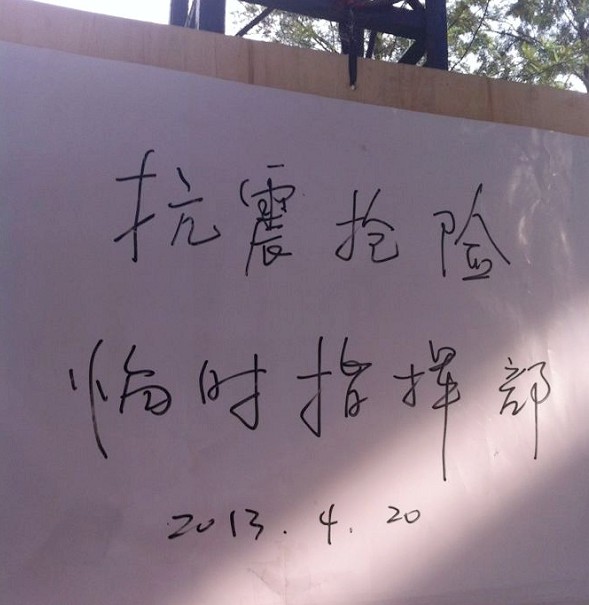 抗震抢险
临时指挥部
2013.4.20